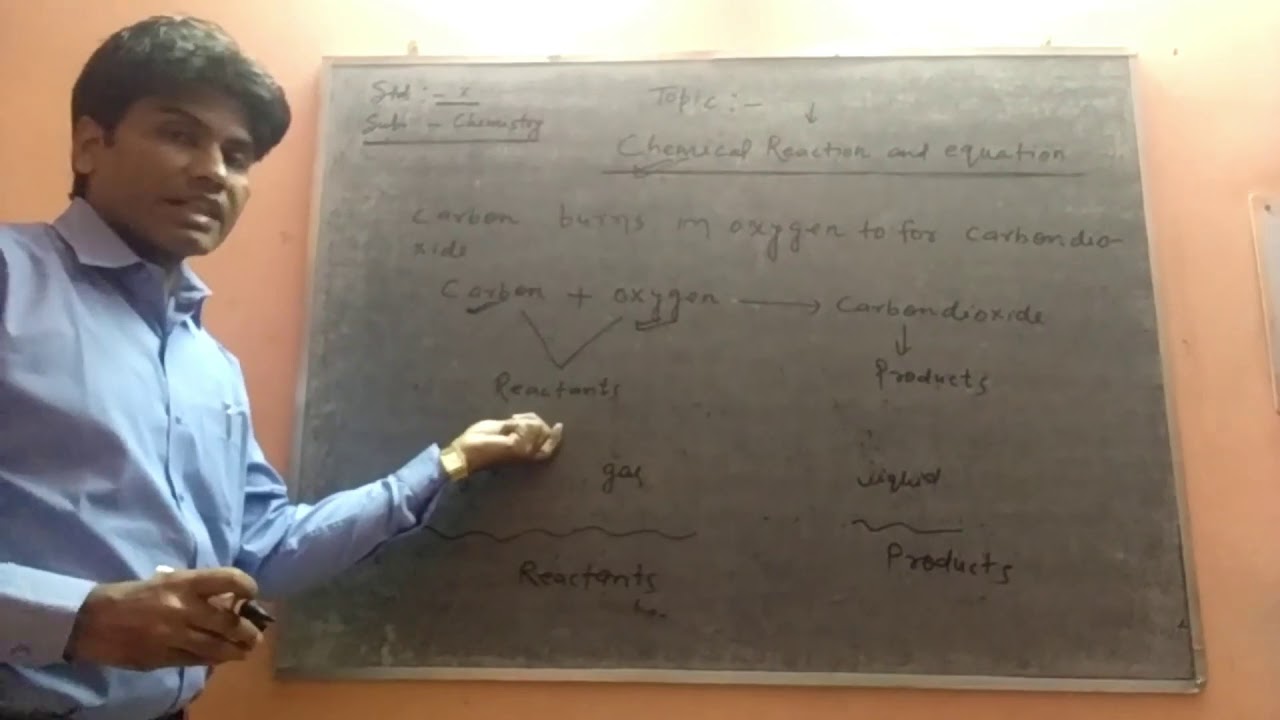 Std :- X
Topic :-
Sub :- Chemistry
Chemical Reaction and equation
Carbon burns in oxygen to for carbondio-
xide
Carbon + oxygen → Carbondioxide
Reactants
Products
gas
liquid
Reactants
Products